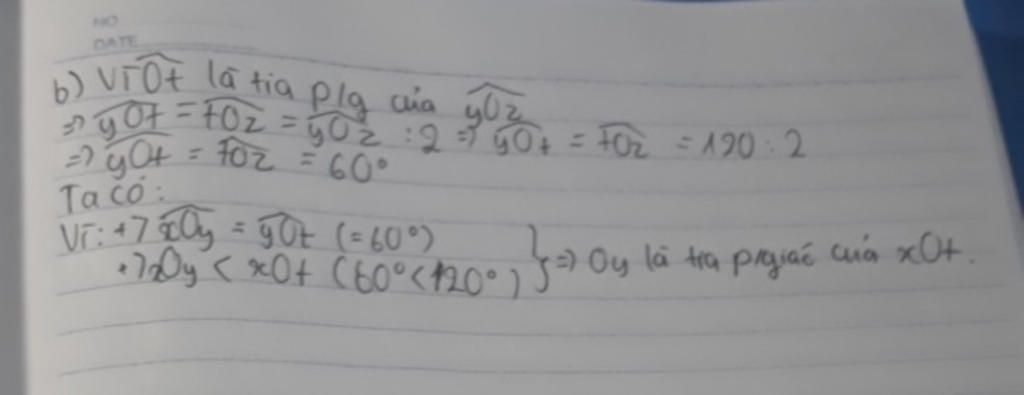 NO
DATE
b) Vì Ot là tia p/g của yOz
=> yOt = tOz = yOz : 2 => yOt = tOz = 120 : 2
=> yOt = tOz = 60°
Ta có:
Vì: +7 xOy = yOt (=60°)
+7 xOy < xOt (60° < 120°) } => Oy là tia p/giác của xOt.